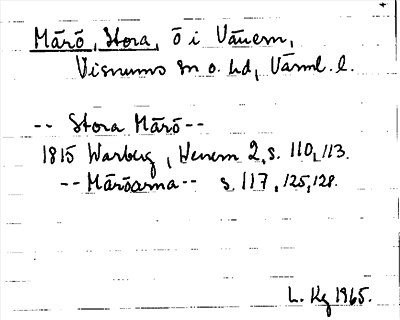 Märö, Stora, ö i Vänern,
Visnums sn o. hd, Värml. l.
-- Stora Märö --
1815 Warberg, Wenern 2, s. 110, 113.
-- Märöarna -- s. 117, 125, 128.
L. Kg 1965.